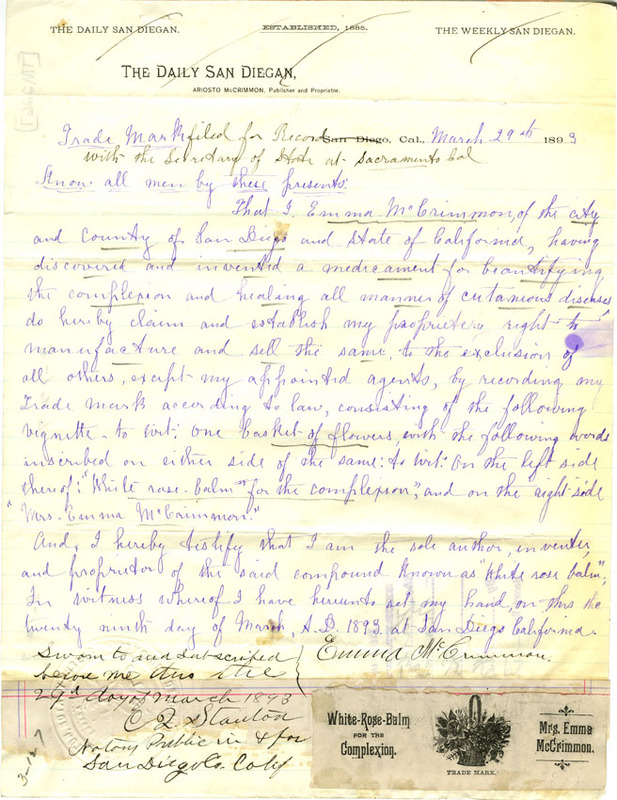 THE DAILY SAN DIEGAN.
ESTABLISHED, 1885.
THE WEEKLY SAN DIEGAN.
THE DAILY SAN DIEGAN,
ARIOSTO McCRIMMON, Publisher and Proprietor.
Trade Mark filed for Record San Diego, Cal., March 29th 1893
with the Secretary of State at Sacramento Cal
Know all men by these presents:
That I, Emma McCrimmon, of the city
and County of San Diego and State of California, having
discovered and invented a medicament for beautifying
the complexion and healing all manner of cutanious diseases,
do hereby claim and establish my proprietery right to
manufacture and sell the same, to the exclusion of
all others, except my appointed agents, by recording my
Trade mark according to law, consisting of the following
vignette - to wit: one basket of flowers, with the following words
inscribed on either side of the same: to wit: On the left side
thereof: "White rose-balm" for the complexion", and on the right side
"Mrs. Emma McCrimmon."
And, I hereby testify that I am the sole author, inventer,
and proprietor of the said compound known as "White rose balm",
In witness whereof I have hereunto set my hand, on this the
twenty ninth day of March, A.D. 1893, at San Diego California.
Emma McCrimmon.
Sworn to and subscribed
before me this the
29th day of March 1893
Stanton
Notary Public in & for
San Diego Co. Calif
3-12-7
White-Rose-Balm
FOR THE
Complexion.
TRADE MARK.
Mrs. Emma
McCrimmon.